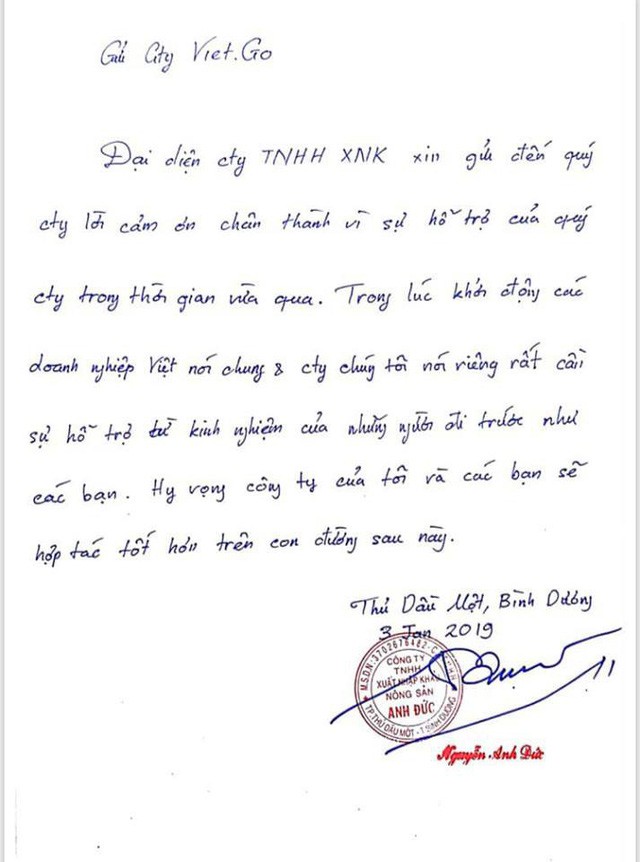 Gửi Cty Viet.Go
Đại diện cty TNHH XNK xin gửi đến quý
cty lời cảm ơn chân thành vì sự hỗ trợ của quý
cty trong thời gian vừa qua. Trong lúc khởi động các
doanh nghiệp Việt nói chung & cty chúng tôi nói riêng rất cần
sự hỗ trợ từ kinh nghiệm của những người đi trước như
các bạn. Hy vọng công ty của tôi và các bạn sẽ
hợp tác tốt hơn trên con đường sau này.
Thủ Dầu Một, Bình Dương
3 Jan 2019
M.S.D.N:3702676482-C.T.T.N.H.H
CÔNG TY
TNHH
XUẤT NHẬP KHẨU
NÔNG SẢN
ANH ĐỨC
TP.THỦ DẦU MỘT - T.BÌNH DƯƠNG
Nguyễn Anh Đức